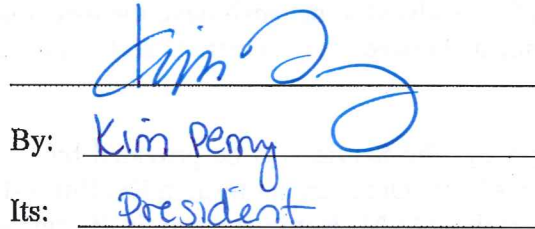 Kim
By: Kim Perry
Its: President